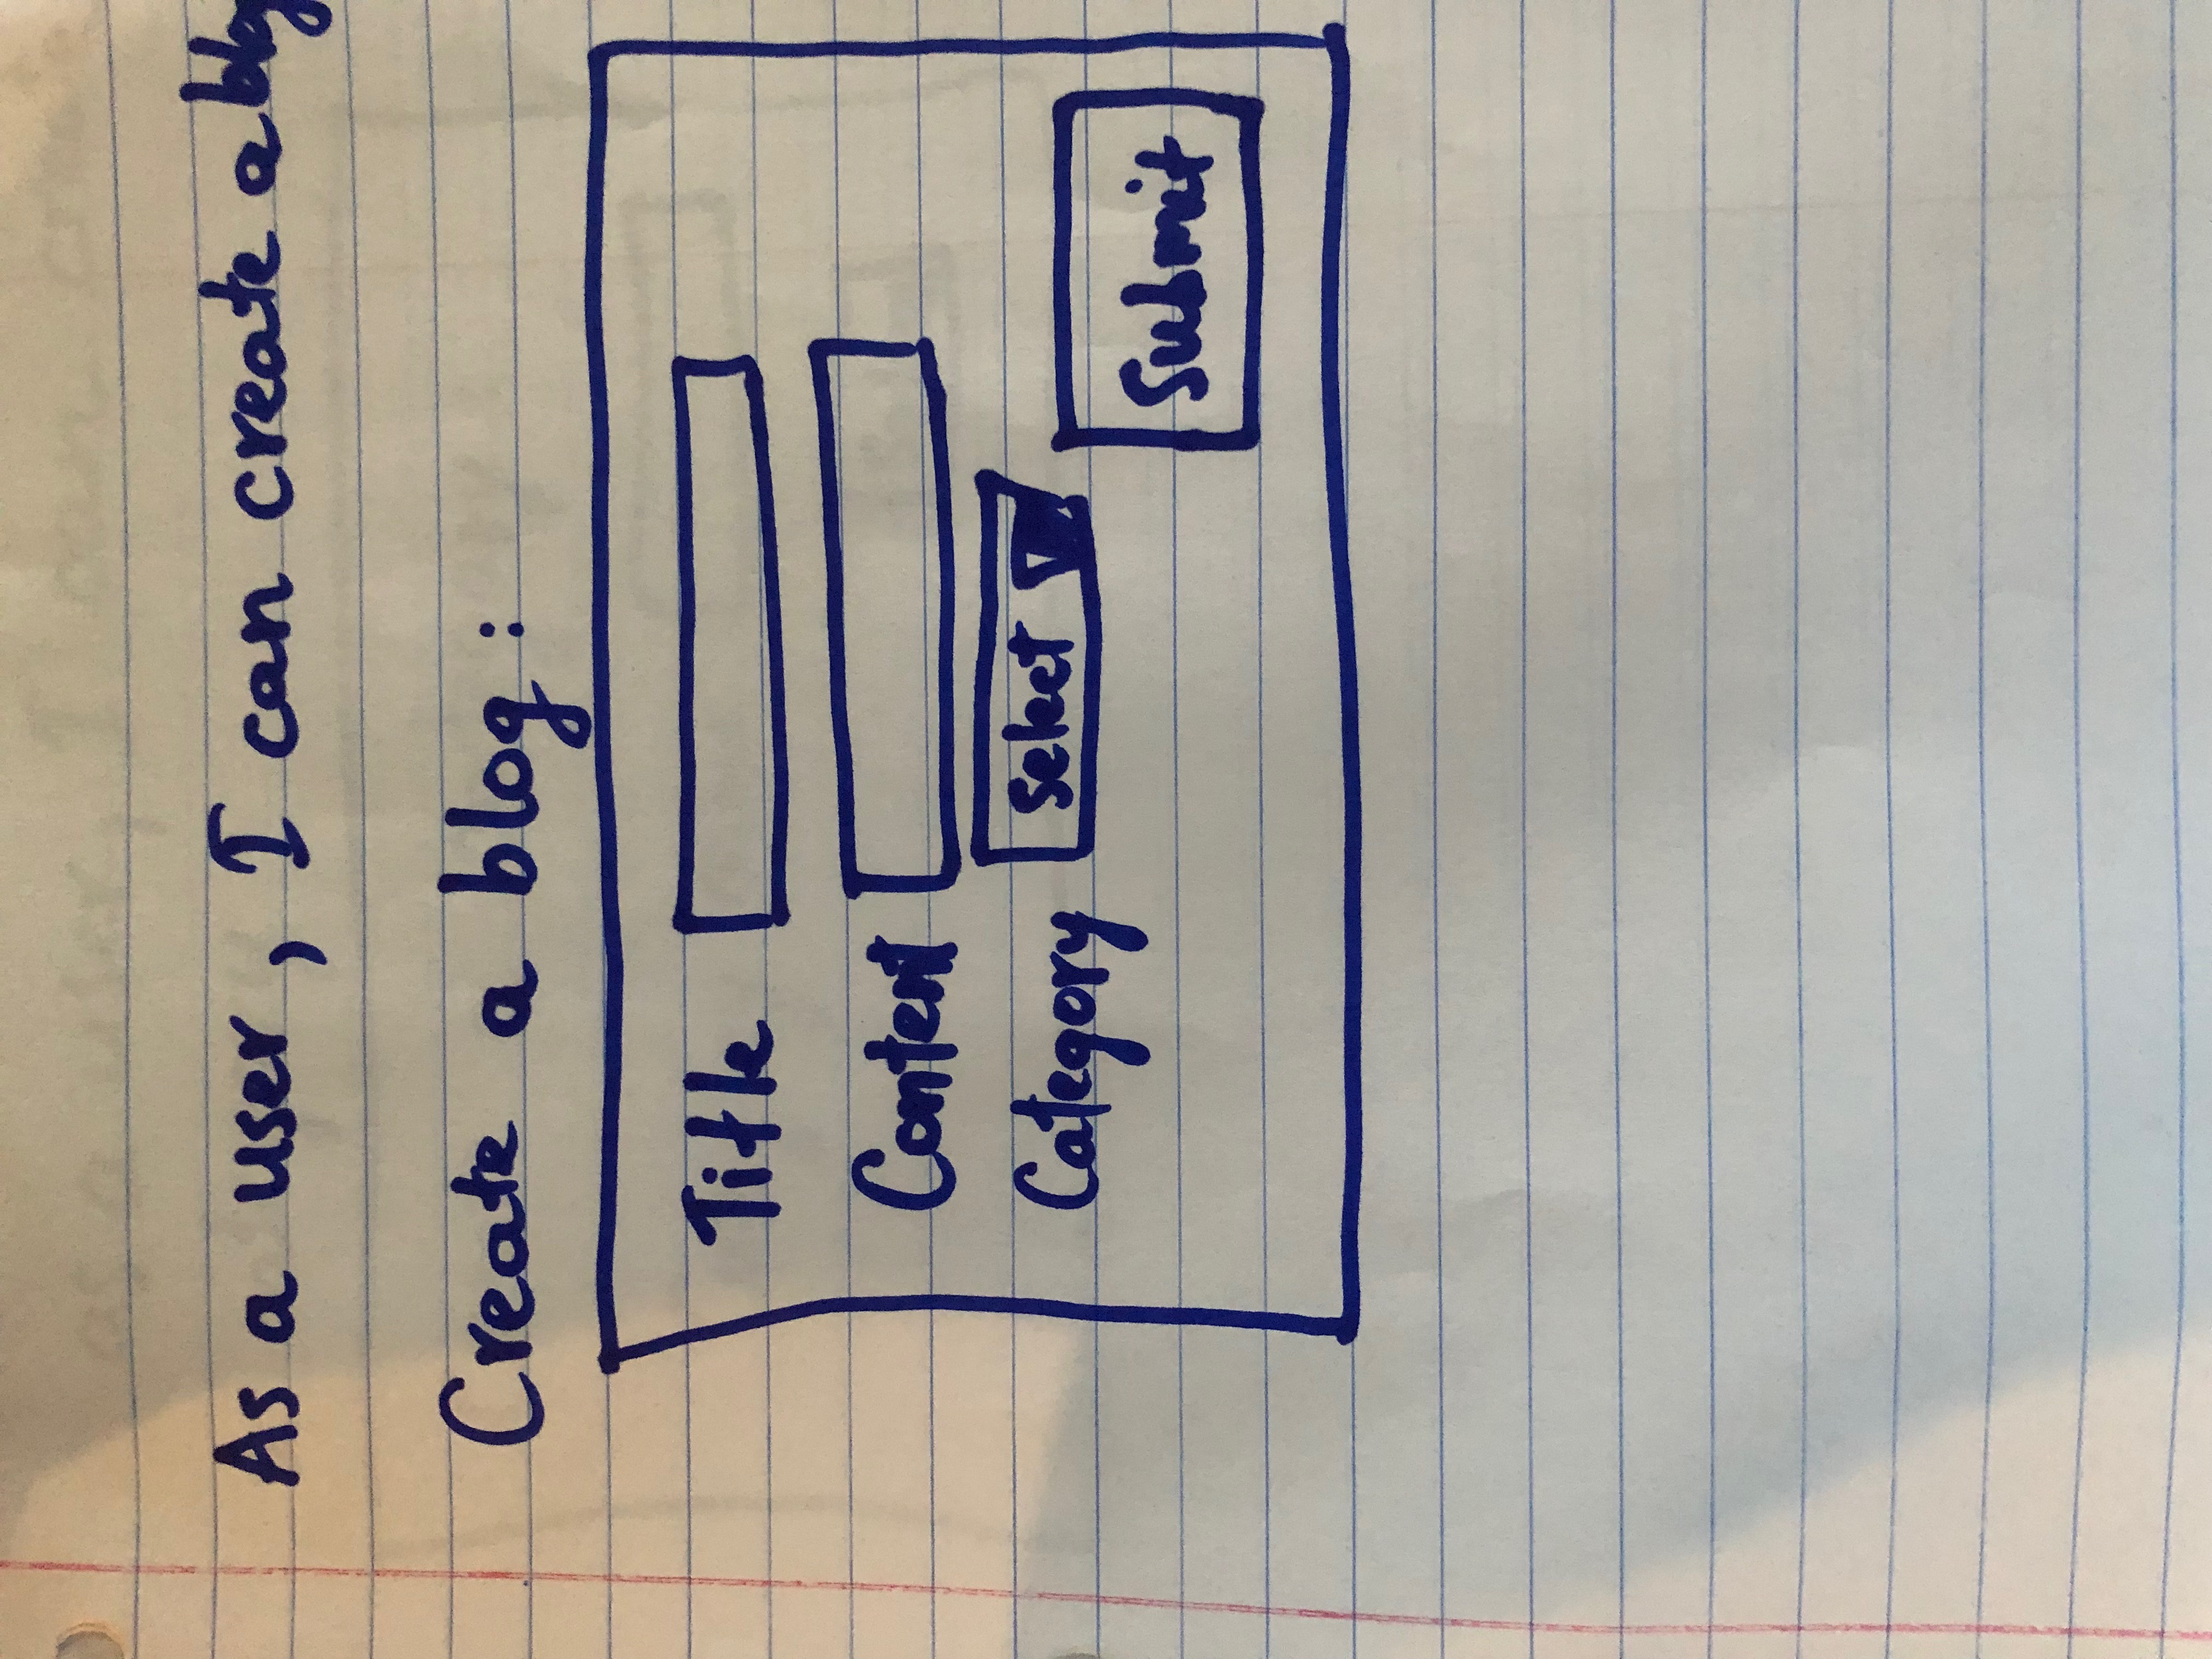 As a user, I can create a blog
Create a blog:
Title
Content
Category select
Submit